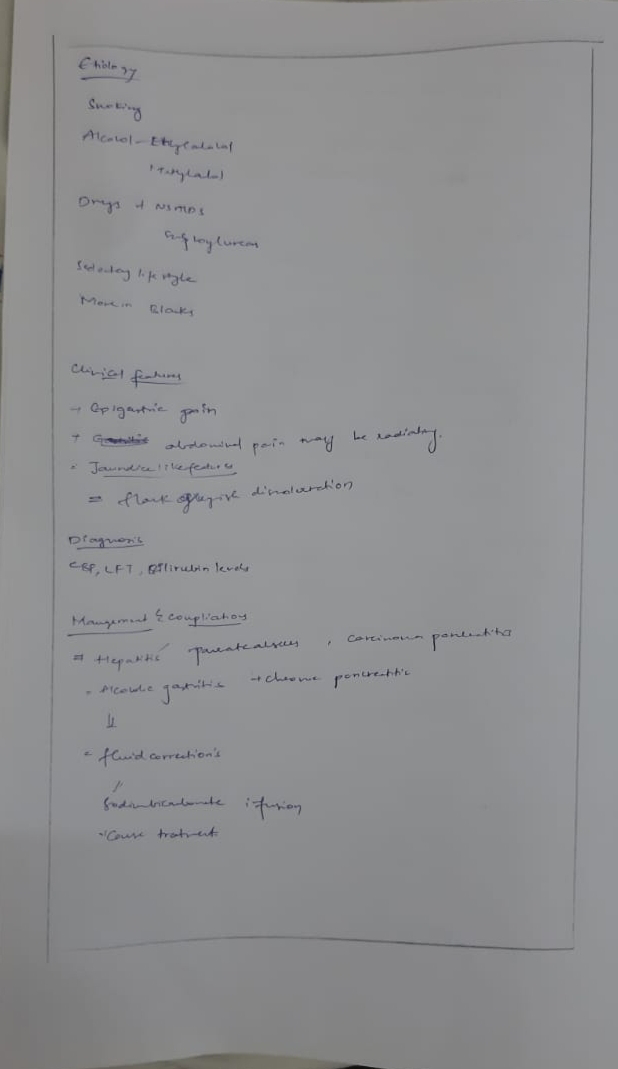 Etiology
Smoking
Alcohol - Ethylalcohol
Methylalcol
Drugs → NSAIDS
Sulfonylureas
Sedentary life style
More in Blacks
Clinical features
→ Epigastric pain
→ abdominal pain may be radiatry.
Jaundice like features
= flank discolaration
Diagnosis
CBP, LFT, Bilirubin levels
Mangement & complications
= Hepatitis , carcinoma
Alcoholic gastritis → chronic pancreatitic
⇓
fluid correction's
Sodiumbicarbonate ifusion
Cause tratment